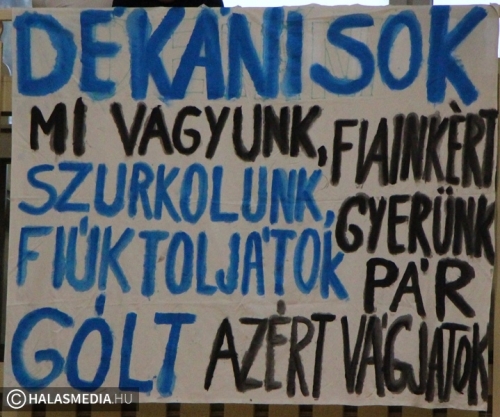 DÉKÁNISOK
MI VAGYUNK, FIAINKÈRT
SZURKOLUNK, GYERÜNK
FIÚK TOLJÁTOK PÁR
GÓLT AZÉRT VÁGJATOK
© HALASMEDIA.HU